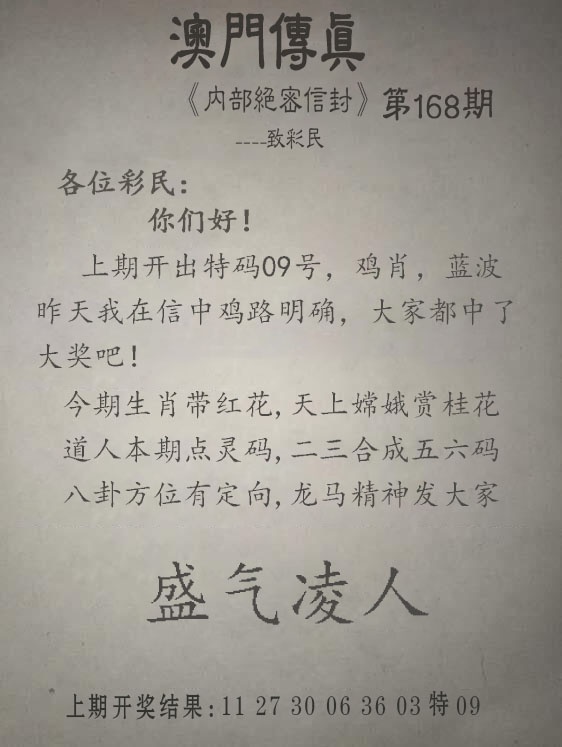 澳門傳眞
《内部絕密信封》第168期
----致彩民
各位彩民:
你们好!
上期开出特码09号，鸡肖，蓝波
昨天我在信中鸡路明确，大家都中了
大奖吧!
今期生肖带红花,天上嫦娥赏桂花
道人本期点灵码,二三合成五六码
八卦方位有定向,龙马精神发大家
盛气凌人
上期开奖结果:11 27 30 06 36 03特09